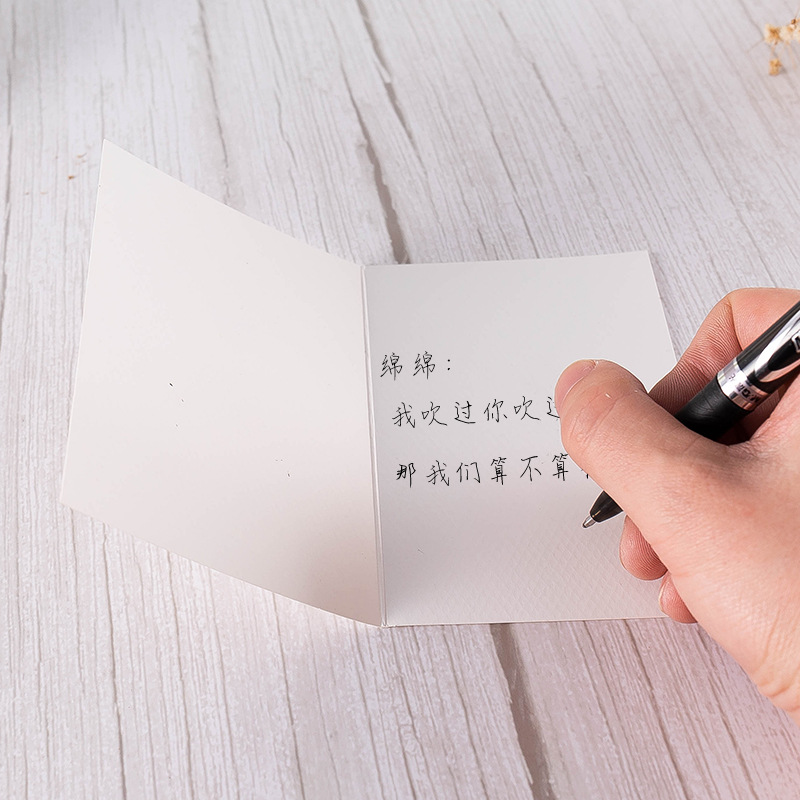 绵绵：
我吹过你吹
那我们算不算